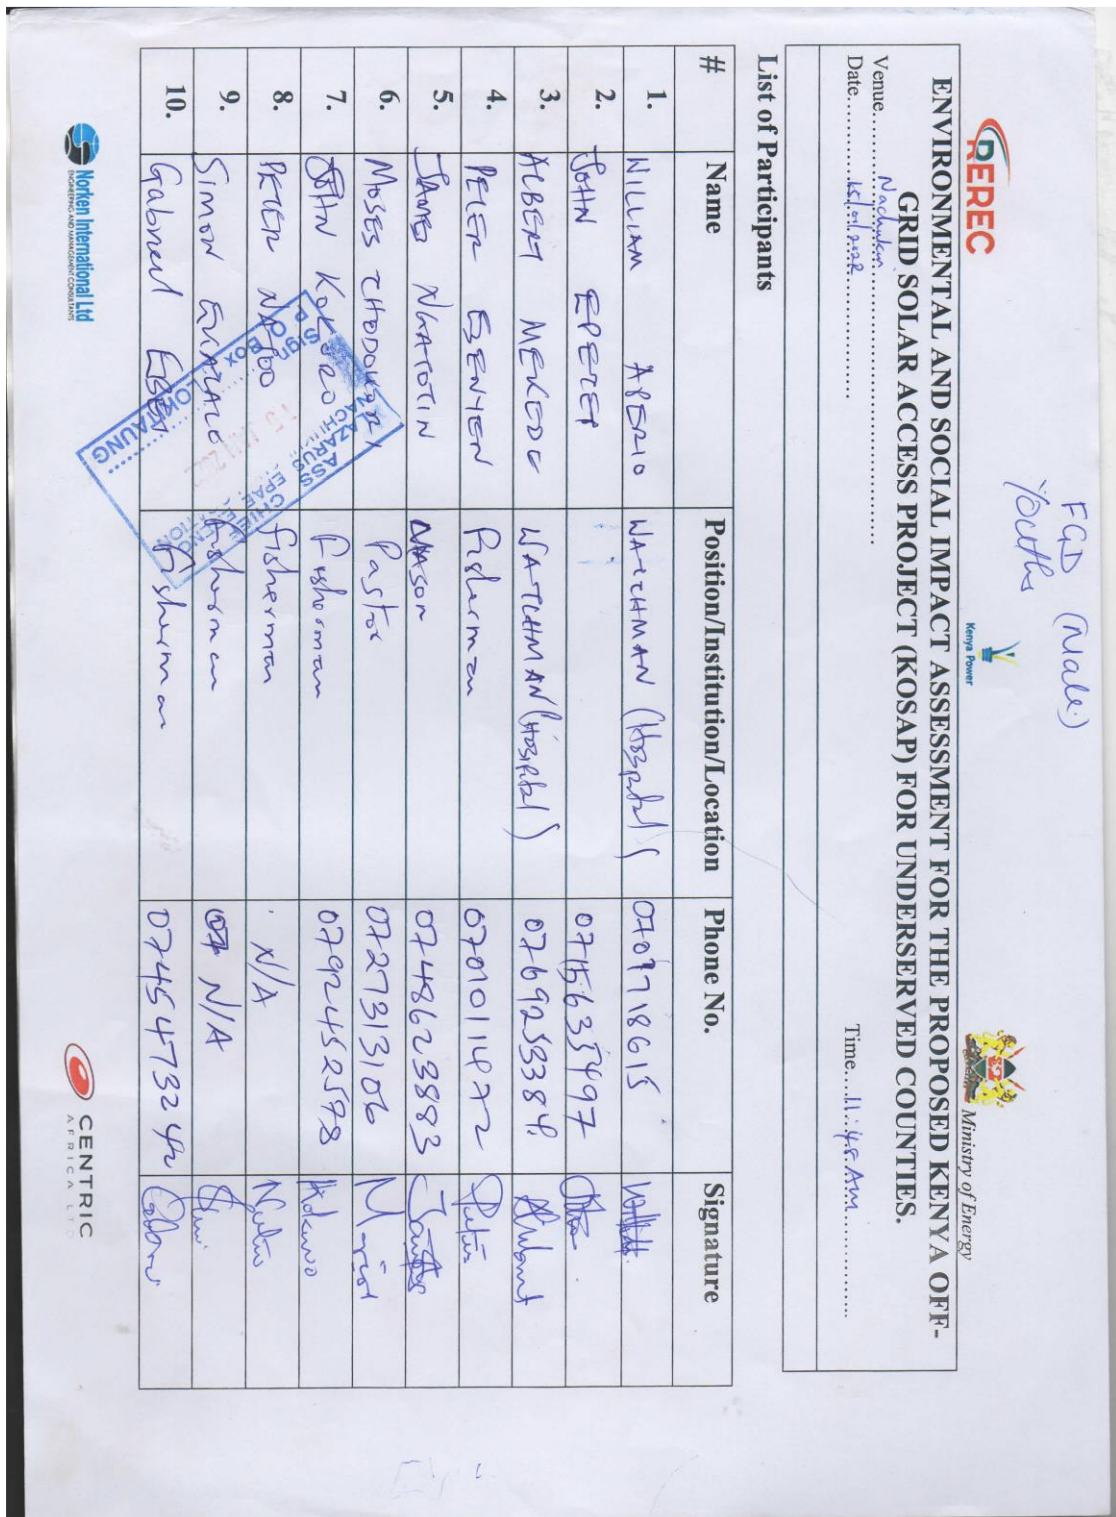 FGD (Male)
Youths
REREC
Kenya Power
Ministry of Energy
ENVIRONMENTAL AND SOCIAL IMPACT ASSESSMENT FOR THE PROPOSED KENYA OFF-
GRID SOLAR ACCESS PROJECT (KOSAP) FOR UNDERSERVED COUNTIES.
Venue....Nachukui....
Date....15/01/2022....
Time....11:45 AM....
List of Participants
# Name Position/Institution/Location Phone No. Signature
1. WILLIAM APERIO WATCHMAN (Hospital) 0707718615
2. JOHN EPETET 0715635497
3. ALBERT MEKEDE WATCHMAN (Hospital) 0769253384
4. PETER EBENYEN Fisherman 0701011472
5. JAMES NGATOTIN MASON 0748623883
6. MOSES Pastor 0727313106
7. JOHN Fisherman 0792452578
8. PETER Fisherman N/A
9. SIMON Fisherman N/A
10. Gabriel Fisherman 0745473242
ASS CHIEF
LAZARUS
Sign
P.O. Box
LOKITAUNG
Norken International Ltd
ENGINEERING AND MANAGEMENT CONSULTANTS
CENTRIC
AFRICA LTD